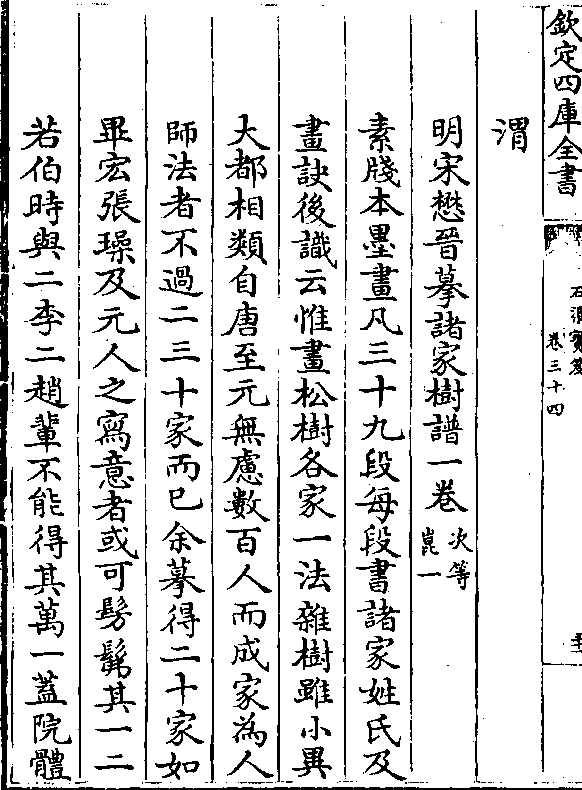 欽定四庫全書
石渠寶笈
卷三十四
渭
明宋懋晉摹諸家樹譜一卷
次等
崑一
素牋本墨畫凡三十九段每段書諸家姓氏及
畫訣後識云惟畫松樹各家一法雜樹雖小異
大都相類自唐至元無慮數百人而成家為人
師法者不過二三十家而已余摹得二十家如
畢宏張璪及元人之寫意者或可髣髴其一二
若伯時與二李二趙輩不能得其萬一蓋院體